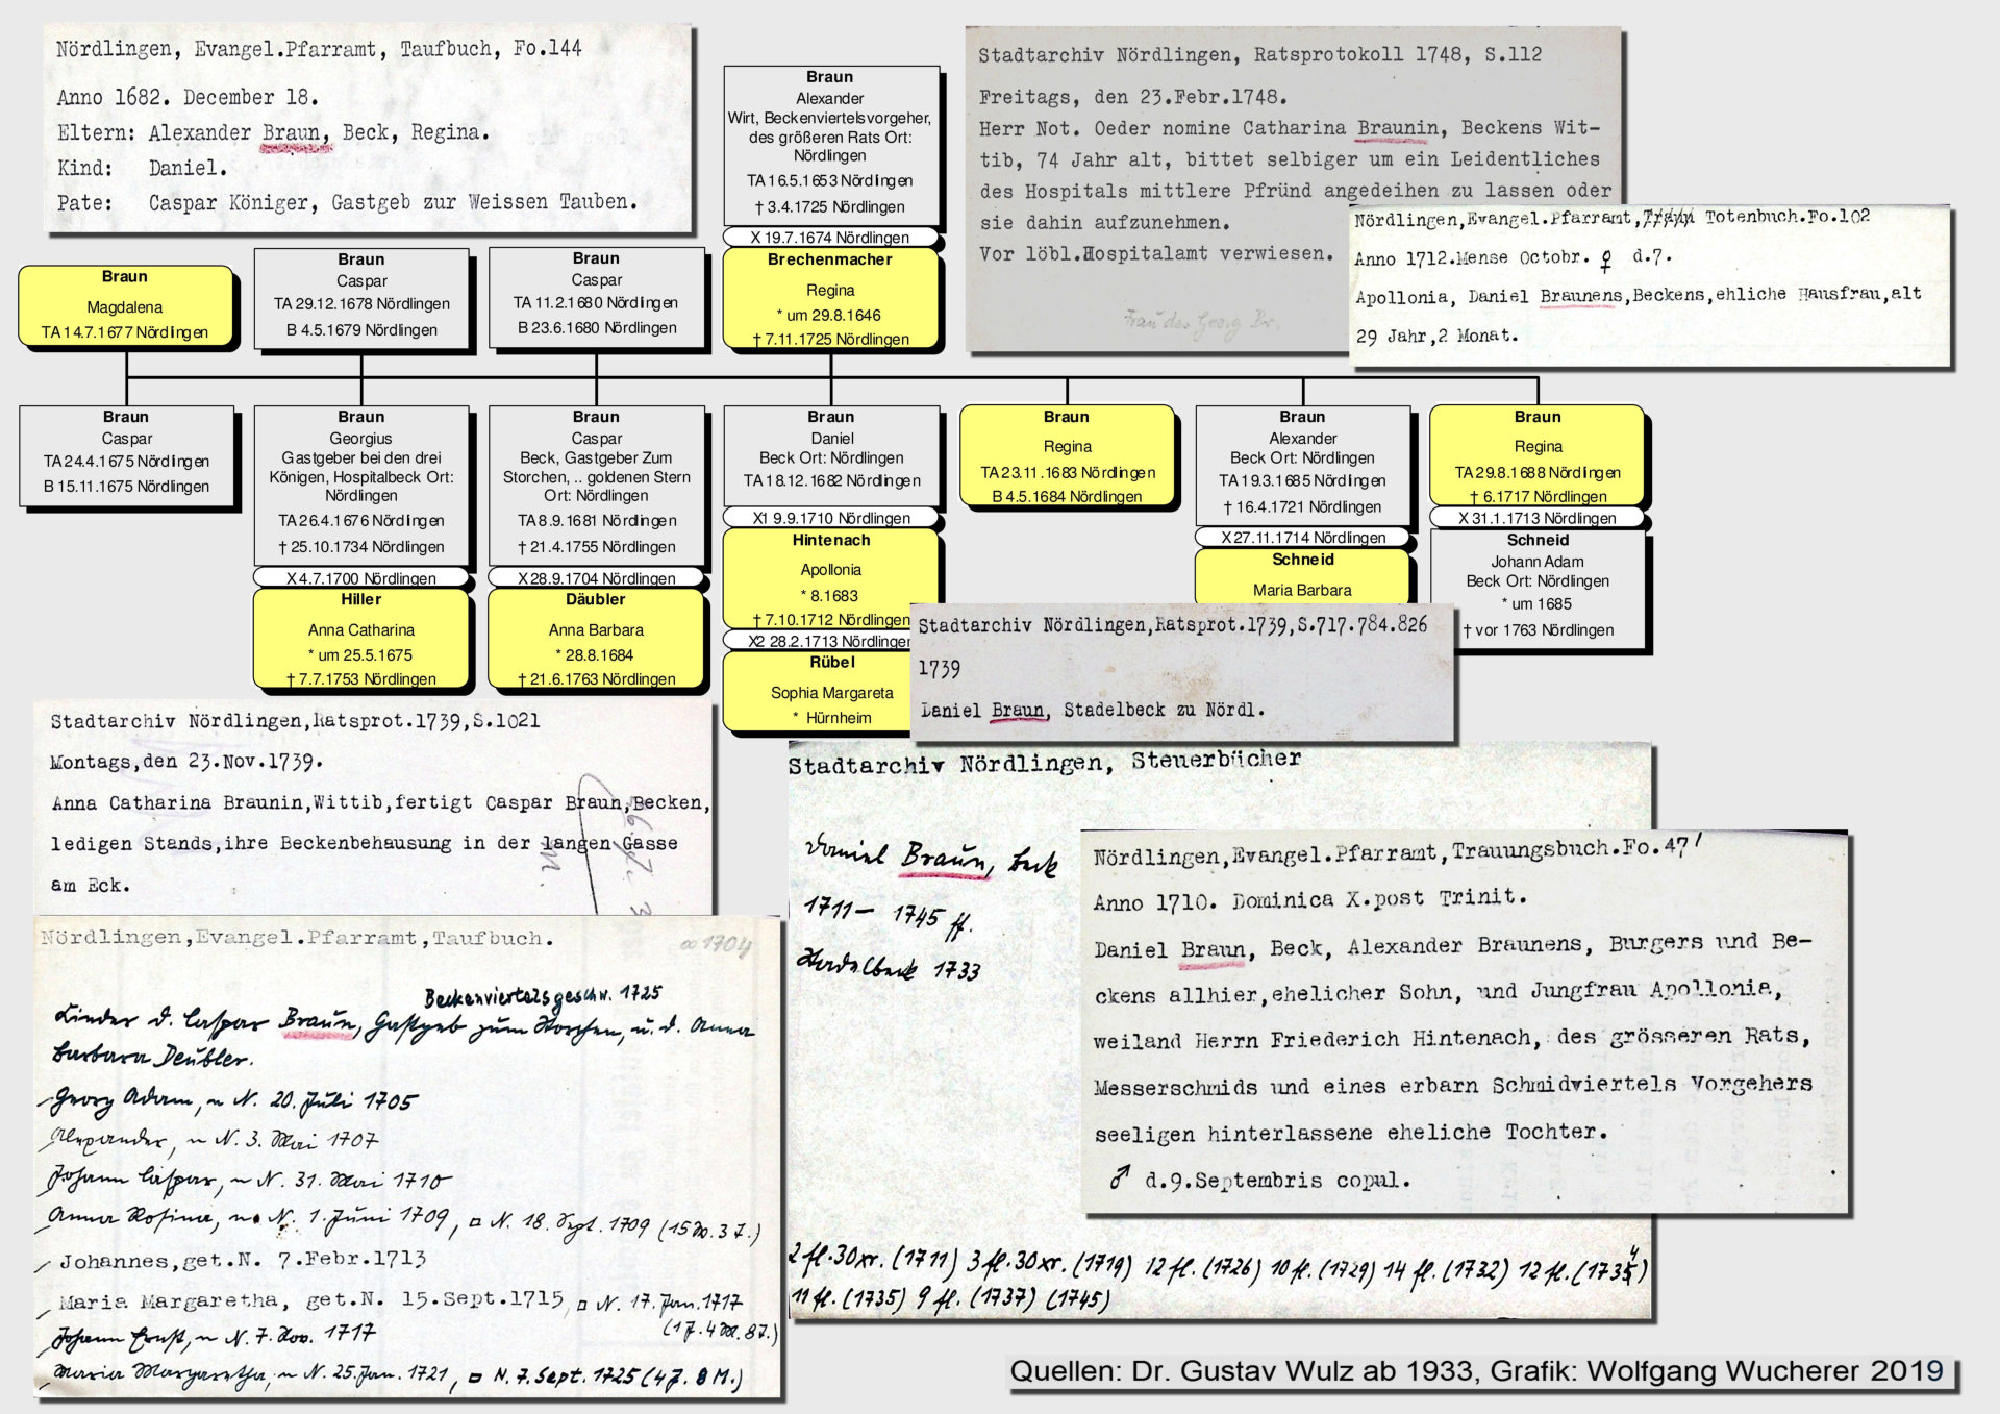 Nördlingen, Evangel.Pfarramt, Taufbuch, Fo.144
Anno 1682. December 18.
Eltern: Alexander Braun, Beck, Regina.
Kind: Daniel.
Pate: Caspar Königer, Gastgeb zur Weissen Tauben.
Braun
Alexander
Wirt, Beckenviertelsvorgeher,
des größeren Rats Ort:
Nördlingen
TA 16.5.1653 Nördlingen
† 3.4.1725 Nördlingen
X 19.7.1674 Nördlingen
Brechenmacher
Regina
* um 29.8.1646
† 7.11.1725 Nördlingen
Stadtarchiv Nördlingen, Ratsprotokoll 1748, S.112
Freitags, den 23.Febr.1748.
Herr Not. Oeder nomine Catharina Braunin, Beckens Wit-
tib, 74 Jahr alt, bittet selbiger um ein Leidentliches
des Hospitals mittlere Pfründ angedeihen zu lassen oder
sie dahin aufzunehmen.
Vor löbl.Hospitalamt verwiesen.
Frau des Georg Br.
Nördlingen,Evangel.Pfarramt, Totenbuch.Fo.102
Anno 1712.Mense Octobr. ♀ d.7.
Apollonia, Daniel Braunens,Beckens,ehliche Hausfrau,alt
29 Jahr,2 Monat.
Braun
Magdalena
TA 14.7.1677 Nördlingen
Braun
Caspar
TA 29.12.1678 Nördlingen
B 4.5.1679 Nördlingen
Braun
Caspar
TA 11.2.1680 Nördlingen
B 23.6.1680 Nördlingen
Braun
Caspar
TA 24.4.1675 Nördlingen
B 15.11.1675 Nördlingen
Braun
Georgius
Gastgeber bei den drei
Königen, Hospitalbeck Ort:
Nördlingen
TA 26.4.1676 Nördlingen
† 25.10.1734 Nördlingen
X 4.7.1700 Nördlingen
Hiller
Anna Catharina
* um 25.5.1675
† 7.7.1753 Nördlingen
Braun
Caspar
Beck, Gastgeber Zum
Storchen, .. goldenen Stern
Ort: Nördlingen
TA 8.9.1681 Nördlingen
† 21.4.1755 Nördlingen
X 28.9.1704 Nördlingen
Däubler
Anna Barbara
* 28.8.1684
† 21.6.1763 Nördlingen
Braun
Daniel
Beck Ort: Nördlingen
TA 18.12.1682 Nördlingen
X1 9.9.1710 Nördlingen
Hintenach
Apollonia
* 8.1683
† 7.10.1712 Nördlingen
X2 28.2.1713 Nördlingen
Rübel
Sophia Margareta
* Hürnheim
Braun
Regina
TA 23.11.1683 Nördlingen
B 4.5.1684 Nördlingen
Braun
Alexander
Beck Ort: Nördlingen
TA 19.3.1685 Nördlingen
† 16.4.1721 Nördlingen
X 27.11.1714 Nördlingen
Schneid
Maria Barbara
Braun
Regina
TA 29.8.1688 Nördlingen
† 6.1717 Nördlingen
X 31.1.1713 Nördlingen
Schneid
Johann Adam
Beck Ort: Nördlingen
* um 1685
† vor 1763 Nördlingen
Stadtarchiv Nördlingen,Ratsprot.1739,S.717.784.826
1739
Daniel Braun, Stadelbeck zu Nördl.
Stadtarchiv Nördlingen,Ratsprot.1739,S.1021
Montags,den 23.Nov.1739.
Anna Catharina Braunin,Wittib,fertigt Caspar Braun,Becken,
ledigen Stands,ihre Beckenbehausung in der langen Gasse
am Eck.
Nördlingen,Evangel.Pfarramt,Taufbuch.
∞ 1704
Beckenviertelsgeschw. 1725
Kinder d. Caspar Braun, Gastgeb zum Storchen, u. d. Anna
Barbara Deubler.
Georg Adam, ~ N. 20. Juli 1705
Alexander, ~ N. 3. Mai 1707
Johann Caspar, ~ N. 31. Mai 1710
Anna Rosina, ~ N. 1. Juni 1709, □ N. 18. Sept. 1709 (15 W. 3 T.)
Johannes,get.N. 7.Febr.1713
Maria Margaretha, get.N. 15.Sept.1715, □ N. 17. Jan. 1717
(1 J. 4 M. 8 T.)
Johann Ernst, ~ N. 7. Nov. 1717
Maria Margaretha, ~ N. 25. Jan. 1721, □ N. 7. Sept. 1725 (4 J. 8 M.)
Stadtarchiv Nördlingen, Steuerbücher
Daniel Braun, Beck
1711 – 1745 ff.
Stadelbeck 1733
2 fl. 30 xr. (1711) 3 fl. 30 xr. (1719) 12 fl. (1726) 10 fl. (1729) 14 fl. (1732) 12 fl. (1734)
11 fl. (1735) 9 fl. (1737) (1745)
Nördlingen,Evangel.Pfarramt,Trauungsbuch.Fo.47/
Anno 1710. Dominica X.post Trinit.
Daniel Braun, Beck, Alexander Braunens, Burgers und Be-
ckens allhier,ehelicher Sohn, und Jungfrau Apollonia,
weiland Herrn Friederich Hintenach, des grösseren Rats,
Messerschmids und eines erbarn Schmidviertels Vorgehers
seeligen hinterlassene eheliche Tochter.
♂ d.9.Septembris copul.
Quellen: Dr. Gustav Wulz ab 1933, Grafik: Wolfgang Wucherer 2019